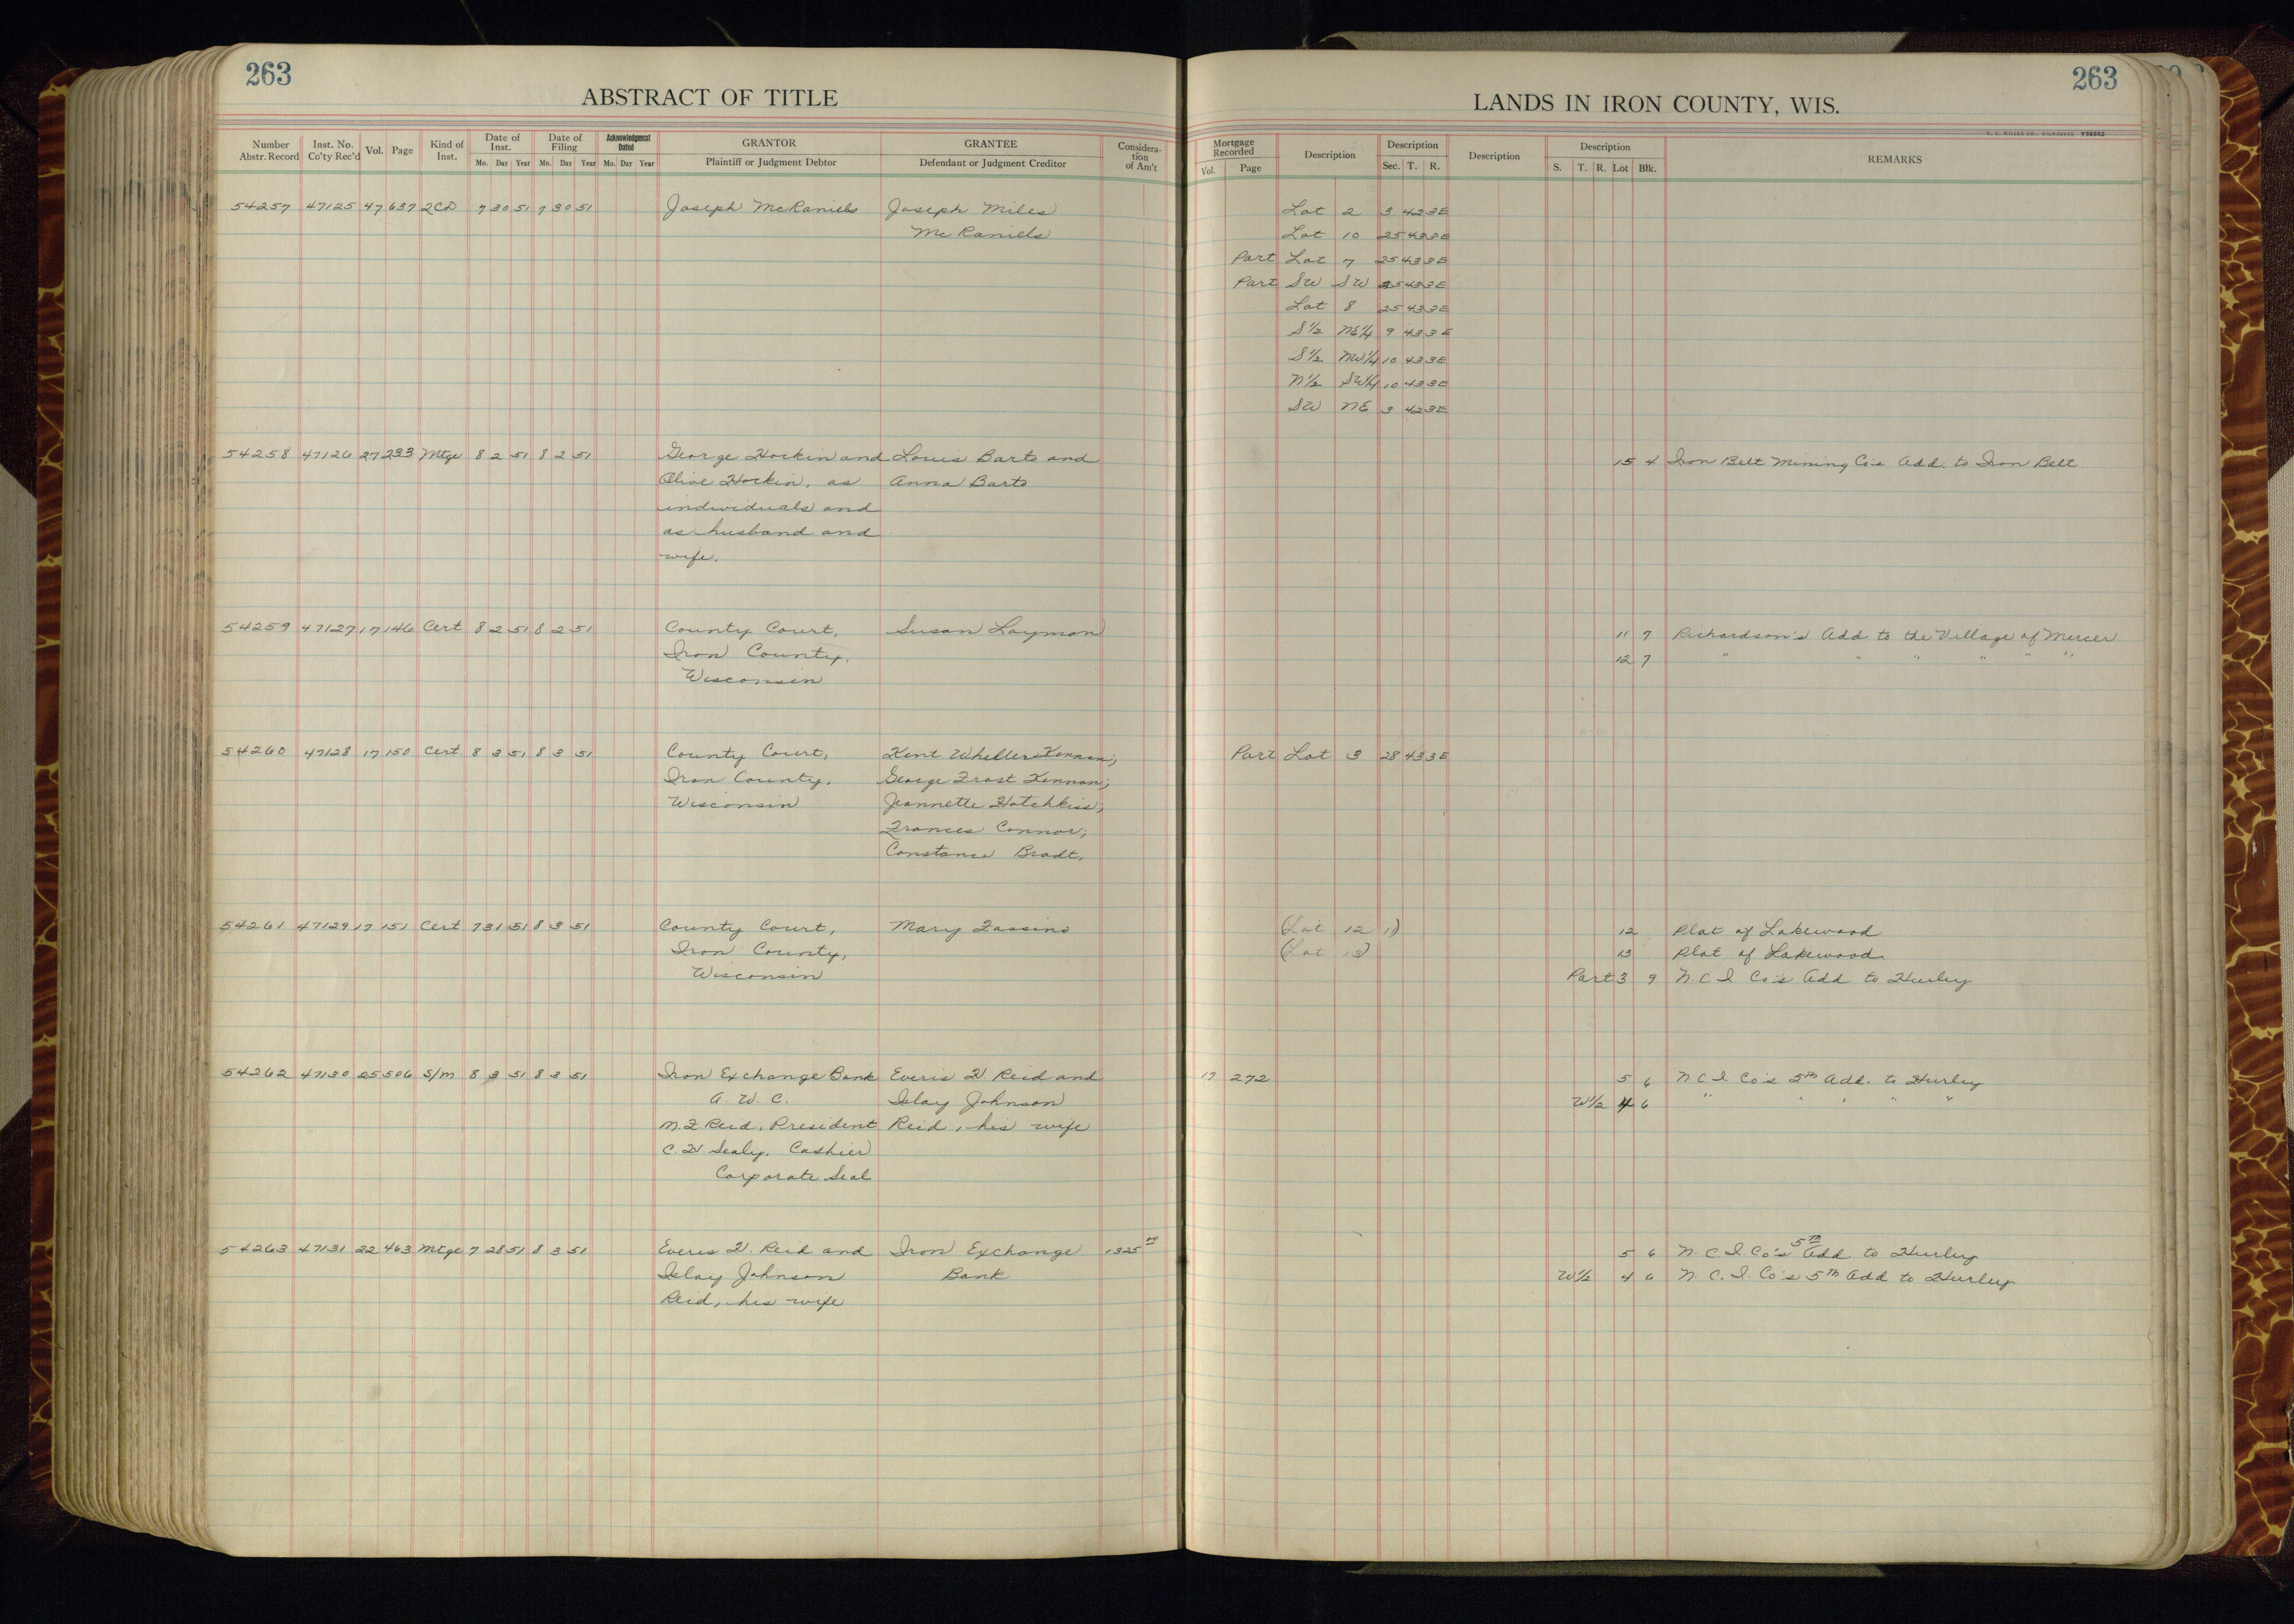 263
ABSTRACT OF TITLE
Number Abstr. Record Inst. No. Co'ty Rec'd Vol. Page Kind of Inst. Date of Inst. Mo. Day Year Date of Filing Mo. Day Year Acknowledgment Dated Mo. Day Year GRANTOR Plaintiff or Judgment Debtor GRANTEE Defendant or Judgment Creditor Considera-tion of Am't
54257 47125 47 637 2CD 7 30 51 7 30 51 Joseph McRaniels Joseph Miles
McRaniels
54258 47126 27 233 Mtge 8 2 51 8 2 51 George Hockin and Louis Barto and
Olive Hockin, as Anna Barto
individuals and
as husband and
wife.
54259 47127 17 146 Cert 8 2 51 8 2 51 County Court, Susan Laymon
Iron County,
Wisconsin
54260 47128 17 150 Cert 8 3 51 8 3 51 County Court, Kent Kennan;
Iron County, George Frost Kennan;
Wisconsin Jeannette Hotchkiss;
Frances Connor;
Constance Bradt.
54261 47129 17 151 Cert 7 31 51 8 3 51 County Court, Mary
Iron County,
Wisconsin
54262 47130 25 506 S/M 8 3 51 8 3 51 Iron Exchange Bank Everis H Reid and
A. W. C. Islay Johnson
N. F Reid, President Reid, his wife
C. H. Sealy, Cashier
Corporate Seal
54263 47131 22 463 Mtge 7 28 51 8 3 51 Everis H. Reid and Iron Exchange 1325
Islay Johnson Bank
Reid, his wife
263
LANDS IN IRON COUNTY, WIS.
H. C. MILLER CO., MILWAUKEE V56552
Mortgage Recorded Vol. Page Description Description Sec. T. R. Description Description S. T. R. Lot Blk. REMARKS
Lot 2 3 42 3E
Lot 10 25 43 3E
Part Lot 7 25 43 3E
Part SW SW 25 43 3E
Lot 8 25 43 3E
S1/2 NE1/4 9 43 3E
S1/2 NW1/4 10 43 3E
N1/2 SW1/4 10 43 3E
SW NE 3 42 3E
15 4 Iron Belt Mining Co's Add. to Iron Belt
11 7 Richardson's Add to the Village of Mercer
12 7 " " " " " "
Part Lot 3 28 43 3E
(Lot 12 1) 12 Plat of Lakewood
(Lot 13) 13 Plat of Lakewood
Part 3 9 N C I Co's Add to Hurley
17 272 5 6 N C I Co's 5th Add. to Hurley
W1/2 4 6 " " " " "
5 6 N. C. I. Co's 5th Add to Hurley
W1/2 4 6 N. C. I. Co's 5th Add to Hurley